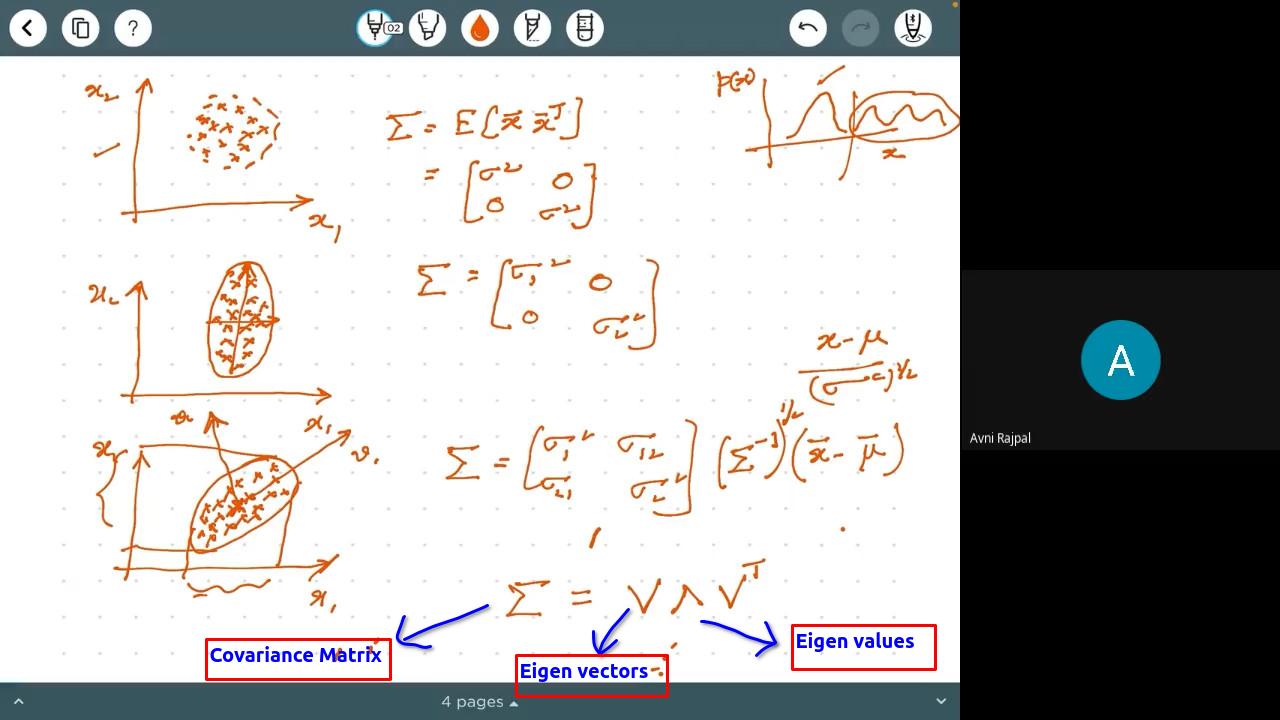 ?
02
x₂
x₁
Σ = E[x̄ x̄ᵀ]
= [σ² 0
0 σ²]
P(x)
x
x₂
x₁
Σ = [σ₁² 0
0 σ₂²]
x - μ
(σ²)^1/2
v₁
x₁
Σ = [σ₁² σ₁₂
σ₂₁ σ₂²] (Σ⁻¹)^1/2 (x̄ - μ̄)
Σ = V Λ Vᵀ
Covariance Matrix
Eigen vectors
Eigen values
4 pages
A
Avni Rajpal